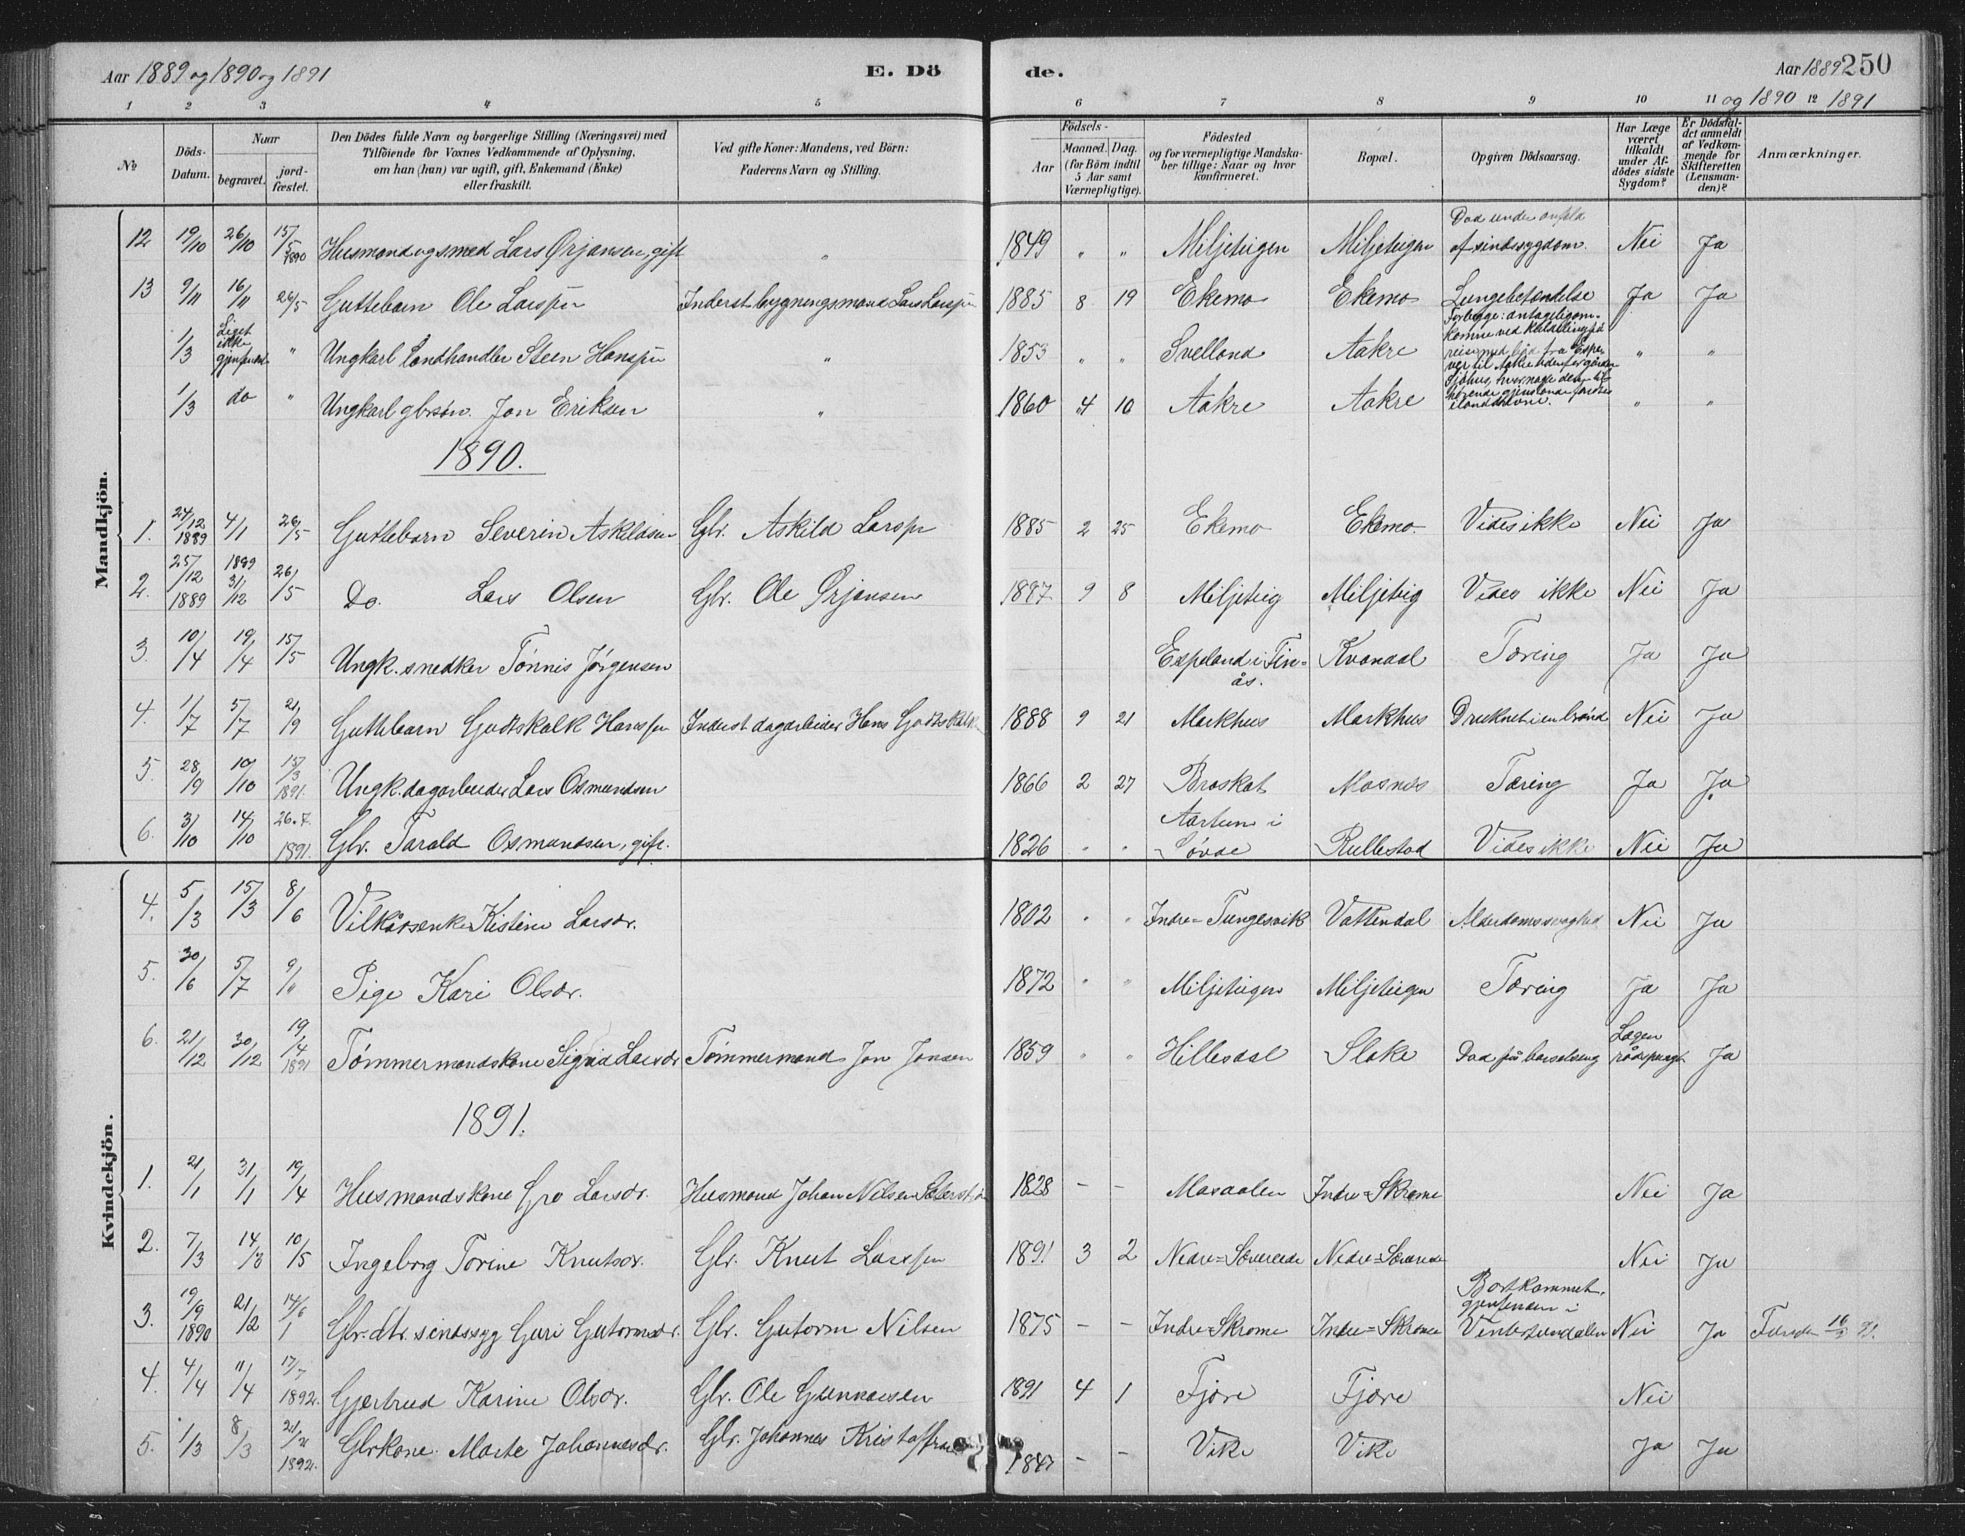 Aar 1889 og 1890 og 1891 E. Dö de. Aar 1889 250
og 1890 1891
1 2 3 4 5 6 7 8 9 10 11 12
No
Döds-Datum.
Naar
begravet.
jord-fæstet.
Den Dödes fulde Navn og borgerlige Stilling (Næringsvei) med
Tilföiende for Voxnes Vedkommende af Oplysning,
om han (hun) var ugift, gift, Enkemand (Enke)
eller fraskilt.
Ved gifte Koner: Mandens, ved Börn:
Faderens Navn og Stilling.
Födsels-
Aar
Maaned. Dag.
(for Börn indtil
5 Aar samt
Værnepligtige).
Födested
og for værnepligtige Mandska-
ber tillige: Naar og hvor
konfirmeret.
Bopæl.
Opgiven Dödsaarsag.
Har Læge
været
tilkaldt
under Af-
dödes sidste
Sygdom?
Er Dödsfal-
det anmeldt
af Vedkom-
mende for
Skifteretten
(Lensman-
den)?
Anmærkninger.
Mandkjön.
12 19/10 26/10 15/5 1890 Husmand og smed Lars Ørjansen, gift " 1849 " " Miljeteigen Miljeteigen Død under anfald af sindssygdom. Nei Ja
13 9/11 16/11 26/5 Guttebarn Ole Larssen Inderst bygningsmand Lars Larssen 1885 8 19 Ekemo Ekemo Lungebetændelse Ja Ja
1/3 Liget ikke gjenfundet " Ungkarl Landhandler Steen Hanssen " 1853 " " Svelland Aakre " "
1/3 do " Ungkarl gbrsøn Jon Eriksen " 1860 4 10 Aakre Aakre " "
1890.
1. 24/12 1889 4/1 26/5 Guttebarn Severin Askildsen Gbr. Askild Larssen 1885 2 25 Ekemo Ekemo Vides ikke Nei Ja
2. 25/12 1889 1889 31/12 26/5 Do. Lars Olsen Gbr. Ole Ørjansen 1887 9 8 Miljeteig Miljeteig Vides ikke Nei Ja
3. 10/4 19/4 15/5 Ungk. snedker Tønnis Jørgensen Espeland i Finås. Kvandal Tæring Ja Ja
4. 1/7 5/7 21/9 Guttebarn Godtskalk Hanssen Inderst dagarbeider Hans Godtskalk 1888 9 21 Markhus Markhus Druknet i en brønd Nei Ja
5. 28/9 10/10 15/3 1891. Ungk. dagarbeider Lars Osmundsen 1866 2 27 Braskat Mosnes Tæring Ja Ja
6. 3/10 14/10 26.7. 1891. Gbr. Tarald Osmundsen, gift. 1826 " " Aartun i Søvde Rullestad Vides ikke Nei Ja
Kvindekjön.
4. 5/3 15/3 8/6 Vilkårsenke Kistine Larsdr. 1802 " " Indre-Tungesvik Vattendal Alderdomssvaghed Nei Ja
5. 30/6 5/7 9/11 Pige Kari Olsdr. 1872 " " Miljeteigen Miljeteigen Tæring Ja Ja
6. 21/12 30/12 19/4 1891 Tømmermandskone Sigrid Larsdr Tømmermand Jon Jonsen 1859 " " Hillesdal Slake Død på barselseng Lægen rådspurgt Ja
1891.
1. 21/1 31/1 19/4 Husmandskone Gro Larsdr. Husmand Johan Nilsen 1828 - - Mosaalen Indre-Skromme Nei Ja
2. 7/3 14/3 10/5 Ingeborg Torine Knutsdr. Gbr. Knut Larssen 1891 3 2 Nedre- Nedre- Nei Ja
3. 19/9 1890 21/2 14/6 1 Gbr. dtr. sindssyg Guri Gutormsdr. Gbr. Gutorm Nilsen 1875 - - Indre-Skromme Indre-Skromme Bortkommet, gjenfunden i Nei Ja Funden
4. 4/4 11/4 17/7 1892. Gjertrud Karine Olsdr. Gbr. Ole Gunnarsen 1891 4 1 Fjære Fjære Nei
5. 1/3 8/3 1892. Gbrkone Marte Johannesdr. Gbr. Johannes Kristoffersen 1847 - - Vike Vike Ja Ja